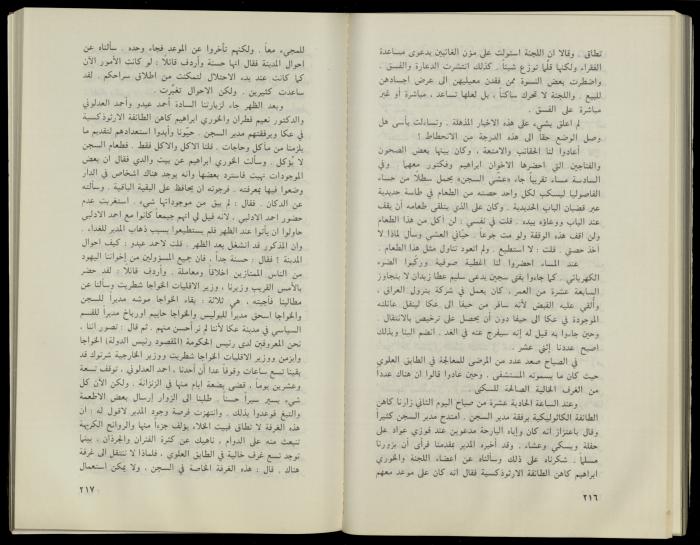 نطاق . وقالا ان اللجنة استولت على مؤن الغائبين بدعوى مساعدة
الفقراء ولكنها قلّما توزع شيئاً . كذلك انتشرت الدعارة والفسق .
واضطرت بعض النسوة ممن فقدن معيليهن الى عرض اجسادهن
للبيع . واللجنة لا تحرك ساكناً ، بل لعلها تساعد ، مباشرة أو غير
مباشرة على الفسق .
لم اعلق بشيء على هذه الاخبار المذهلة . وتساءلت بأسى هل
وصل الوضع حقاً الى هذه الدرجة من الانحطاط !
أعادوا لنا الحقائب والامتعة ، وكان بينها بعض الصحون
والفناجين التي احضرها الاخوان ابراهيم وفكتور معهما . وفي
السادسة مساء تقريباً جاء «عشّي السجن» يحمل سطلاً من حساء
الفاصوليا ليسكب لكل واحد حصته من الطعام في طاسة حديدية
عبر قضبان الباب الحديدية . وكان على الذي يتلقى طعامه أن يقف
عند الباب ووعاؤه بيده . قلت في نفسي : لن آكل من هذا الطعام
ولن اقف هذه الوقفة ولو مت جوعاً . حيّاني العشي وسأل لماذا لا
آخذ حصتي . قلت : لا استطيع . ولم اتعود تناول مثل هذا الطعام .
عند المساء احضروا لنا اغطية صوفية وركّبوا الضوء
الكهربائي . كما جاءوا بفتى سجين يدعى سليم عطا زيدان لا يتجاوز
السابعة عشرة من العمر ، كان يعمل في شركة بترول العراق ،
وألقي عليه القبض لأنه سافر من حيفا الى عكا لينقل عائلته
الموجودة في عكا الى حيفا دون أن يحصل على ترخيص بالانتقال .
وحين جاءوا به قيل له إنه سيفرج عنه في الغد . انضم الينا وبذلك
اصبح عددنا إثني عشر .
في الصباح صعد عدد من المرضى للمعالجة في الطابق العلوي
حيث كان ما يسمونه المستشفى . وحين عادوا قالوا ان هناك عدداً
من الغرف الخالية الصالحة للسكنى .
وعند الساعة الحادية عشرة من صباح اليوم الثاني زارنا كاهن
الطائفة الكاثوليكية برفقة مدير السجن . امتدح مدير السجن كثيراً
وقال باعتزاز انه كان واياه البارحة مدعوين عند فوزي عواد على
حفلة ويسكي وعشاء . وقد أخبره المدير بمقدمنا فرأى أن يزورنا
مسلماً . شكرناه على ذلك وسألناه عن اعضاء اللجنة والخوري
ابراهيم كاهن الطائفة الارثوذكسية فقال انه كان على موعد معهم
٢١٦
للمجيء معاً . ولكنهم تأخروا عن الموعد فجاء وحده . سألناه عن
احوال المدينة فقال انها حسنة وأردف قائلاً : لو كانت الأمور الآن
كما كانت عند بدء الاحتلال لتمكنت من اطلاق سراحكم . لقد
ساعدت كثيرين . ولكن الاحوال تغيّرت .
وبعد الظهر جاء لزيارتنا السادة أحمد عبدو وأحمد العدلوني
والدكتور نعيم قطران والخوري ابراهيم كاهن الطائفة الارثوذكسية
في عكا وبرفقتهم مدير السجن . حيّونا وأبدوا استعدادهم لتقديم ما
يلزمنا من مآكل وحاجات . قلنا الاكل والاكل فقط . فطعام السجن
لا يُؤكل . وسألت الخوري ابراهيم عن بيت والدي فقال ان بعض
الموجودات نهبت فاسترد بعضها وانه يوجد هناك اشخاص في الدار
وضعوا فيها بمعرفته . فرجوته ان يحافظ على البقية الباقية . وسألته
عن الدكان . فقال : لم يبق من موجوداتها شيء . استغربت عدم
حضور احمد الادلبي ، لأنه قيل لي انهم جميعاً كانوا مع احمد الادلبي
حاولوا ان يأتوا عند الظهر فلم يستطيعوا بسبب ذهاب المدير للغداء .
وان المذكور قد انشغل بعد الظهر . قلت لاحمد عبدو : كيف احوال
المدينة ! فقال : حسنة جداً ، فان جميع المسؤولين من إخواننا اليهود
من الناس الممتازين اخلاقاً ومعاملة . وأردف قائلاً : لقد حضر
بالأمس القريب وزيرنا ، وزير الاقليات الخواجا شطريت وسألنا عن
مطالبنا فأجبته ، هي ثلاثة : بقاء الخواجا موشه مديراً للسجن
والخواجا اسحق مديراً للبوليس والخواجا حاييم اورباخ مديراً للقسم
السياسي في مدينة عكا لأننا لم نر أحسن منهم . ثم قال : تصور اننا ،
نحن المعروفين لدى رئيس الحكومة (المقصود رئيس الدولة) الخواجا
وايزمن ووزير الاقليات الخواجا شطريت ووزير الخارجية شرتوك قد
بقينا تسع ساعات وقوفا عدا أن أحدنا ، احمد العدلوني ، توقف تسعة
وعشرين يوماً ، قضى بضعة ايام منها في الزنزانة . ولكن الآن كل
شيء يسير سيراً حسناً . طلبنا الى الزوار إرسال بعض الاطعمة
والتبغ فوعدوا بذلك . وانتهزت فرصة وجود المدير لاقول له : ان
هذه الغرفة لا تطاق فبيت الخلاء يؤلف جزءاً منها والروائح الكريهة
تنبعث منه على الدوام ، ناهيك عن كثرة الفئران والجرذان . بينما
توجد تسع غرف خالية في الطابق العلوي ، فلماذا لا ننتقل الى غرفة
هناك . قال : هذه الغرفة الخاصة في السجن ، ولا يمكن استعمال
٢١٧